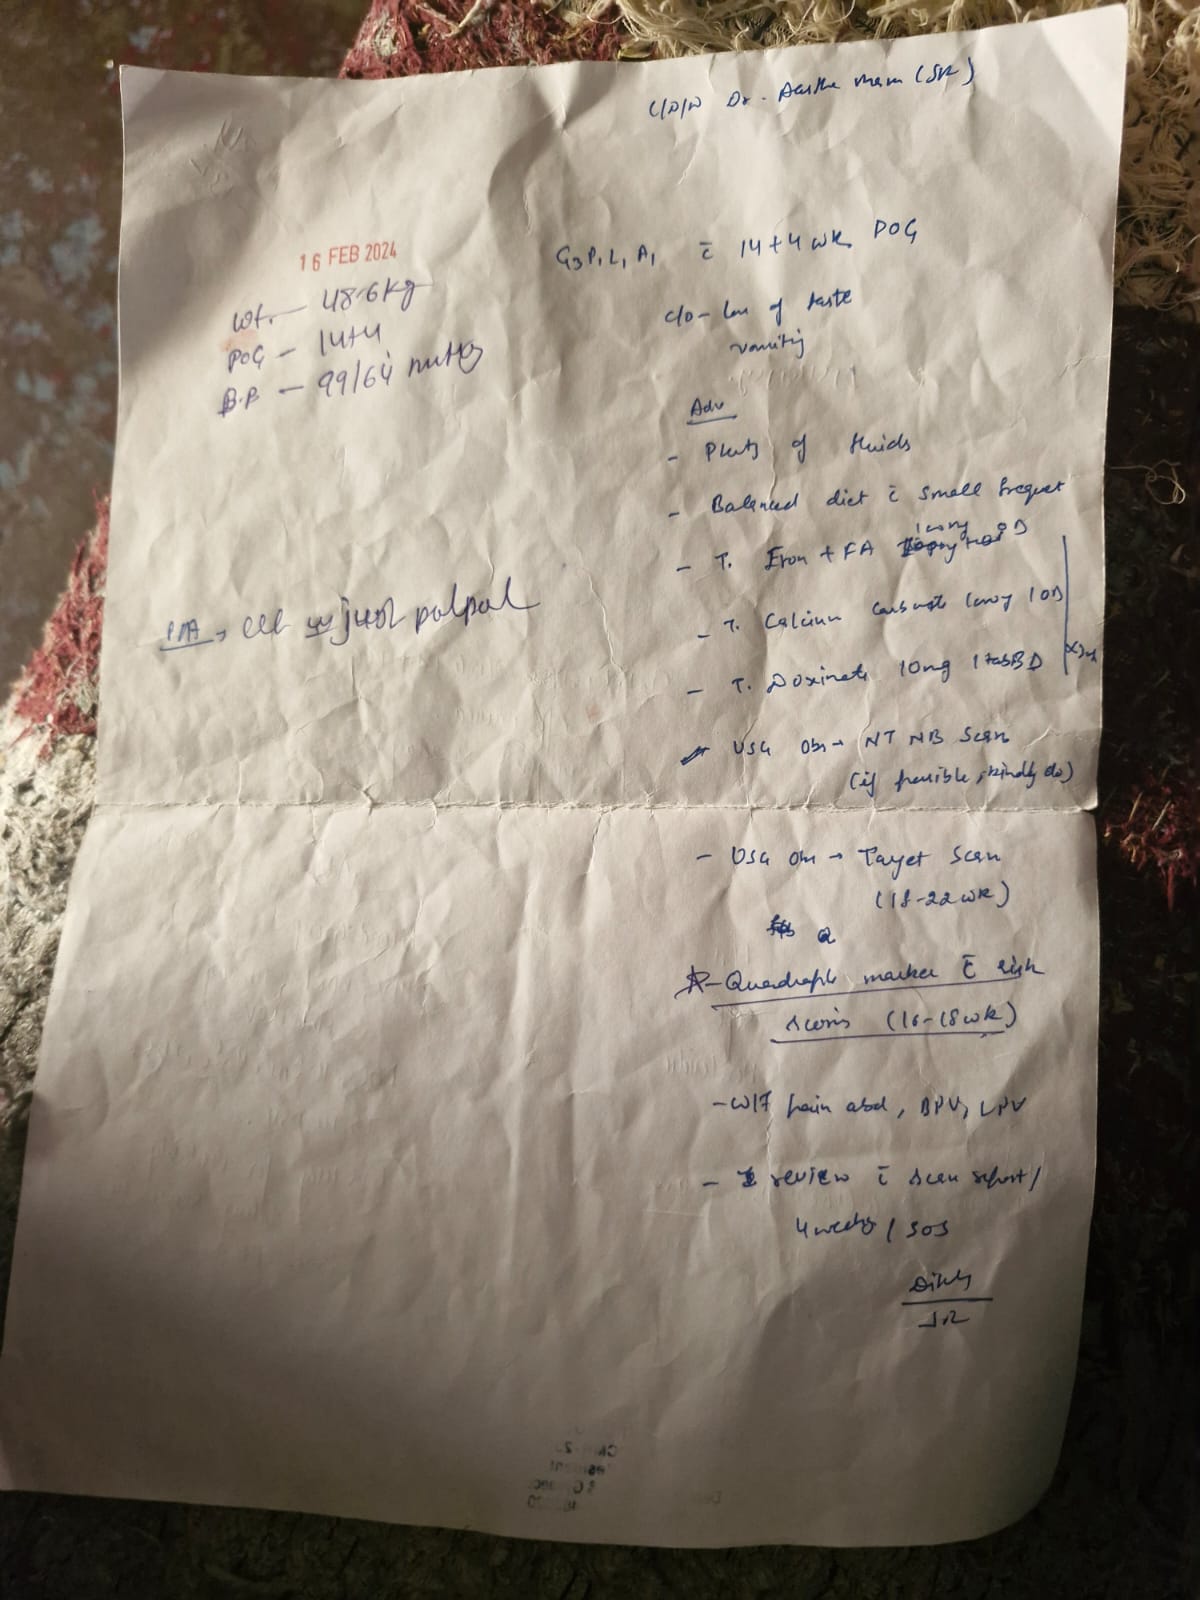 C/D/W Dr. Aastha mam (SR)
16 FEB 2024
Wt. — 48.6kg
POG — 14+4
B.P — 99/64 mmHg
G3P1L1A1 c̄ 14+4 wk POG
c/o - loss of taste
vomiting
Adv
- Plenty of fluids
- Balanced diet c̄ small frequent
- T. Iron + FA OD
P/A → ut just palpable
- T. Calcium carbonate 1 OD
- T. Doxinate 10mg 1 tab BD
- USG Obs → NT NB Scan
(if feasible, kindly do)
- USG Obs → Target Scan
(18-22 wk)
- Quadruple marker c̄ risk
scoring (16-18wk)
- W/F pain abd, BPV, LPV
- review c̄ scan report /
4 weeks / SOS
JR